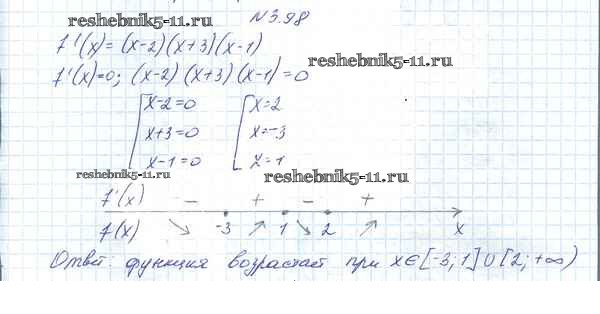 reshebnik5-11.ru
N3.98
f'(x)=(x-2)(x+3)(x-1)
reshebnik5-11.ru
f'(x)=0; (x-2)(x+3)(x-1)=0
[x-2=0 [x=2
x+3=0 x=-3
x-1=0 x=1
reshebnik5-11.ru
reshebnik5-11.ru
f'(x) - + - +
f(x) ↘ -3 ↗ 1 ↘ 2 ↗ x
Ответ: функция возрастает при x∈[-3;1]∪[2;+∞)